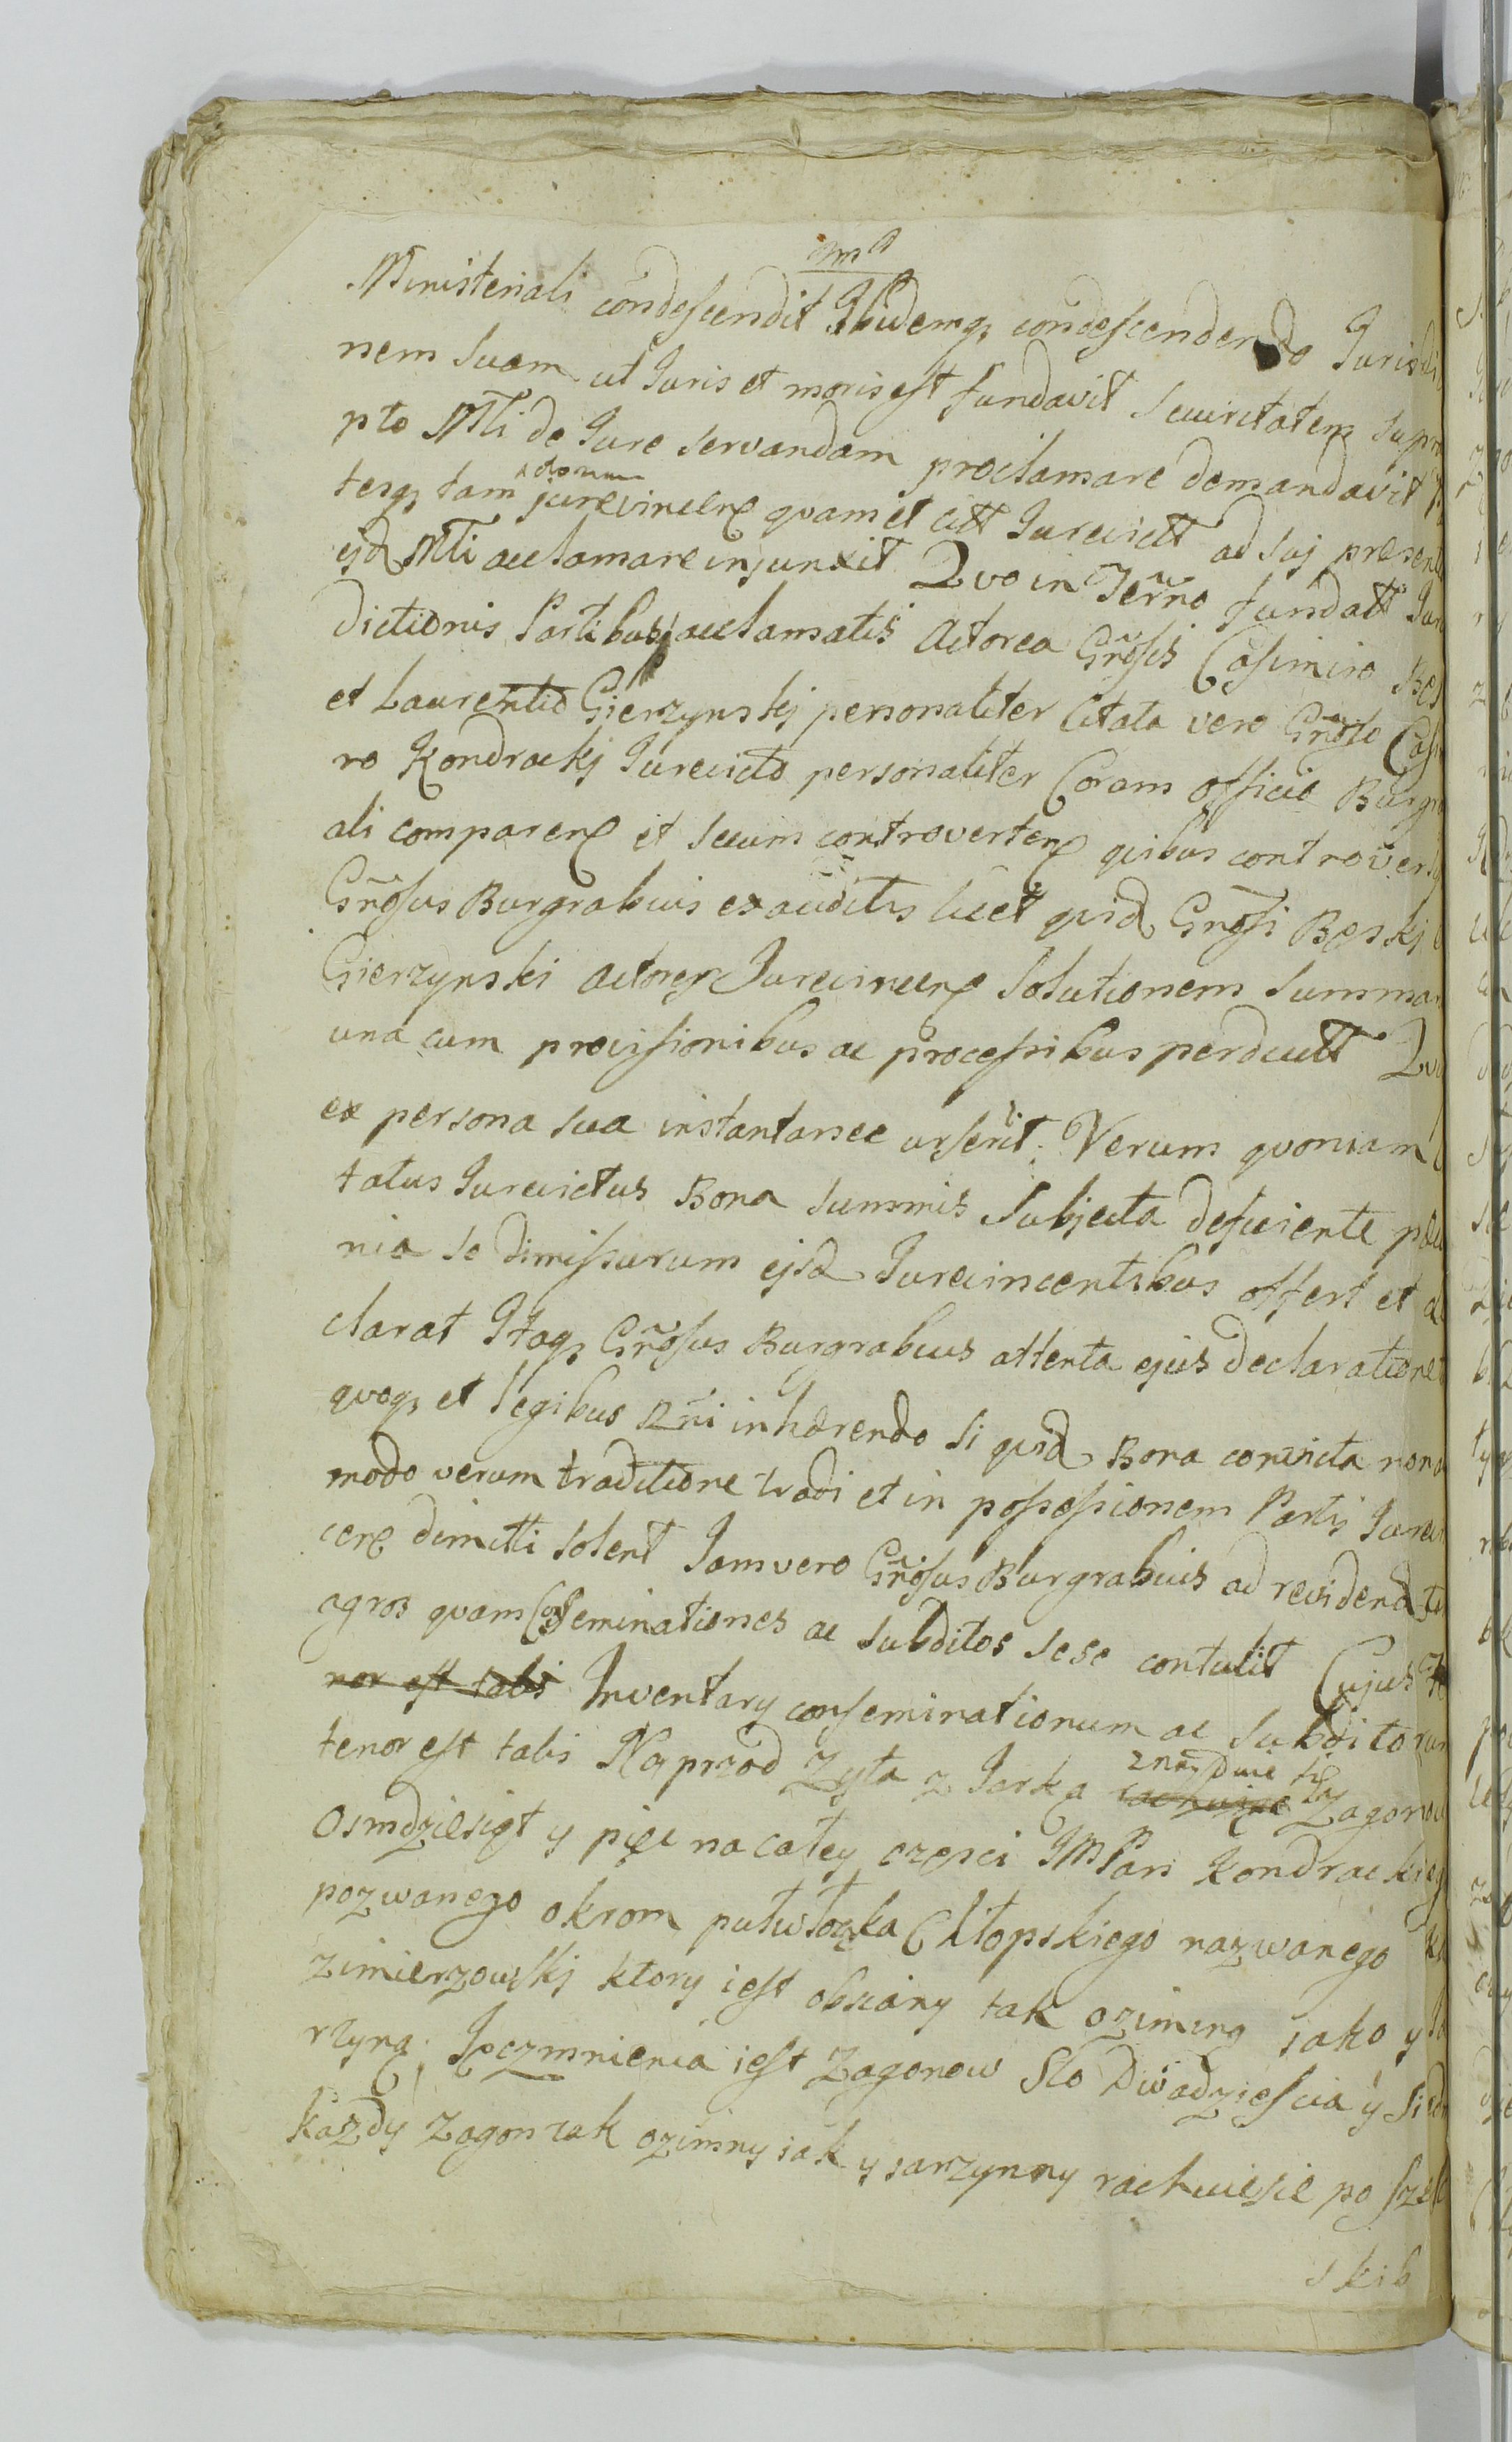 Ministeriali condescendit Ibidemq; condescendendo Jurisdi
nem suam ut Juris et moris est fundavit securitatem supra
pto Mtli de Jure servandam proclamare demandavit
tesq; tam jurevincen quam et citt Jurevictt ad suj presen
ejd Mtli acclamare injunxit Quo in Terno fundatt Juris
dictionis Partibus acclamatis Actorea Gnosis Casimiro Bęs
et Laurentio Gierzynskj personaliter Citata vero Gnoso Casi
ro Kondrackj Jurevicto personaliter Coram officio Burgra
ali comparen et secum controverten quibus controversy
Gnosus Burgrabius exauditis licet quid Gnosi Bęskj
Gierzynski Actores Jurevincen solutionem summar
una cum provisionibus ac processibus perductt Quo
ex persona sua instantanee urserit. Verum quoniam
tatus Jurevictus Bona summis subjecta deficiente pecu
nia se dimissurum ejsd Jurevincentibus offert et de
clarat Itaq; Gnosus Burgrabius attenta ejus declaratione
quoq; et legibus Rni inhærendo si quid Bona convicta non
modo verum traditione tradi et in possessionem Partis Jurevin
cen dimitti solent Jamvero Gnosus Burgrabius ad revidend
agros quam Conseminationes ac subditos sese contulit Cujus
nor est talis Inventary conseminationum ac subditorum
tenor est talis Naprzod Zyta z Jarka znayduie się Zagonow
Osmdziesiąt y pięc na całey częsci JmPan Kondrackieg
pozwanego okrom pułwłoczka Chłopskiego nazwanego
zimierzowskj ktory iest obsiany tak oziminą iako y Ja
rzyną; Jęczmnienia iest Zagonow Sto Dwadziescia y sied
każdy Zagon tak ozimny iak y jarzynny rachuiesie po szesc
skib